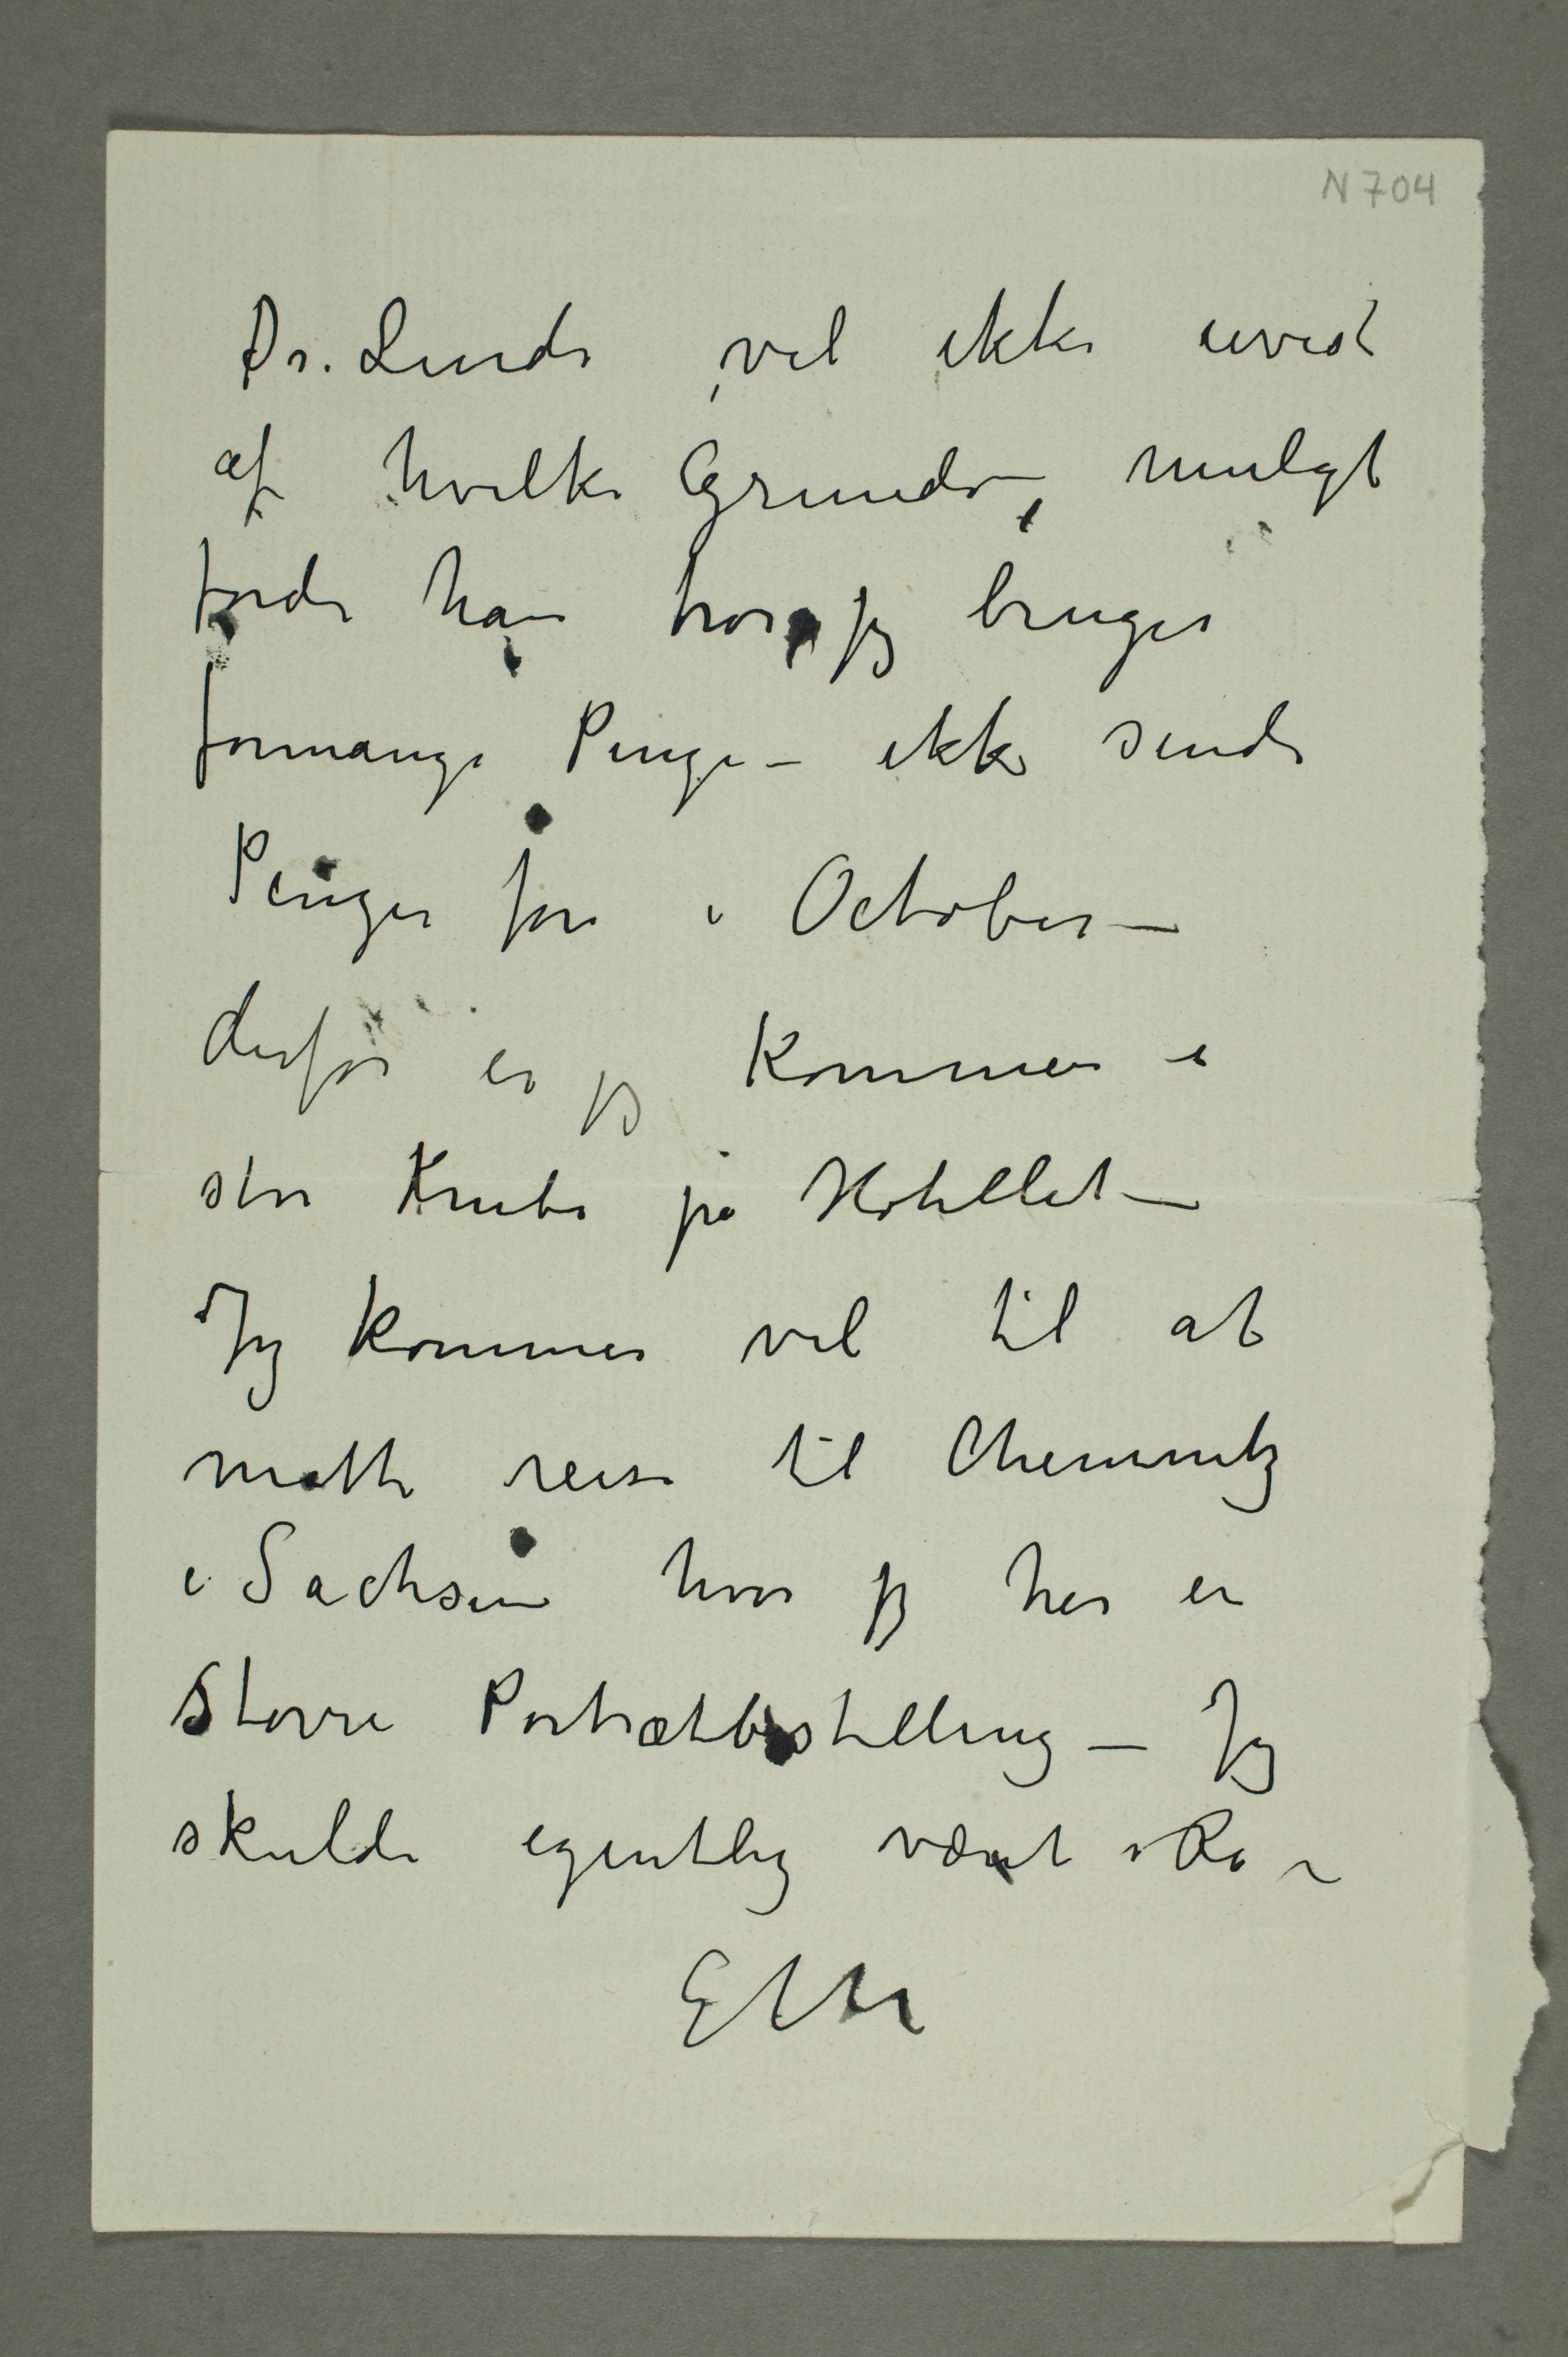 N 704
Dr. Linde vil ikke uvist
af hvilke Grunde, muligt
fordi han tror jeg bruger
formange Penge – ikke sende
Penger før i October –
derfor er jeg kommen i
stor Knibe på Hotellet –
Jeg kommer vel til at
måtte reise til Chemnitz
i Sachsen hvor jeg har en
Større Portrætbestilling – Jeg
skulde egentlig været i
EM